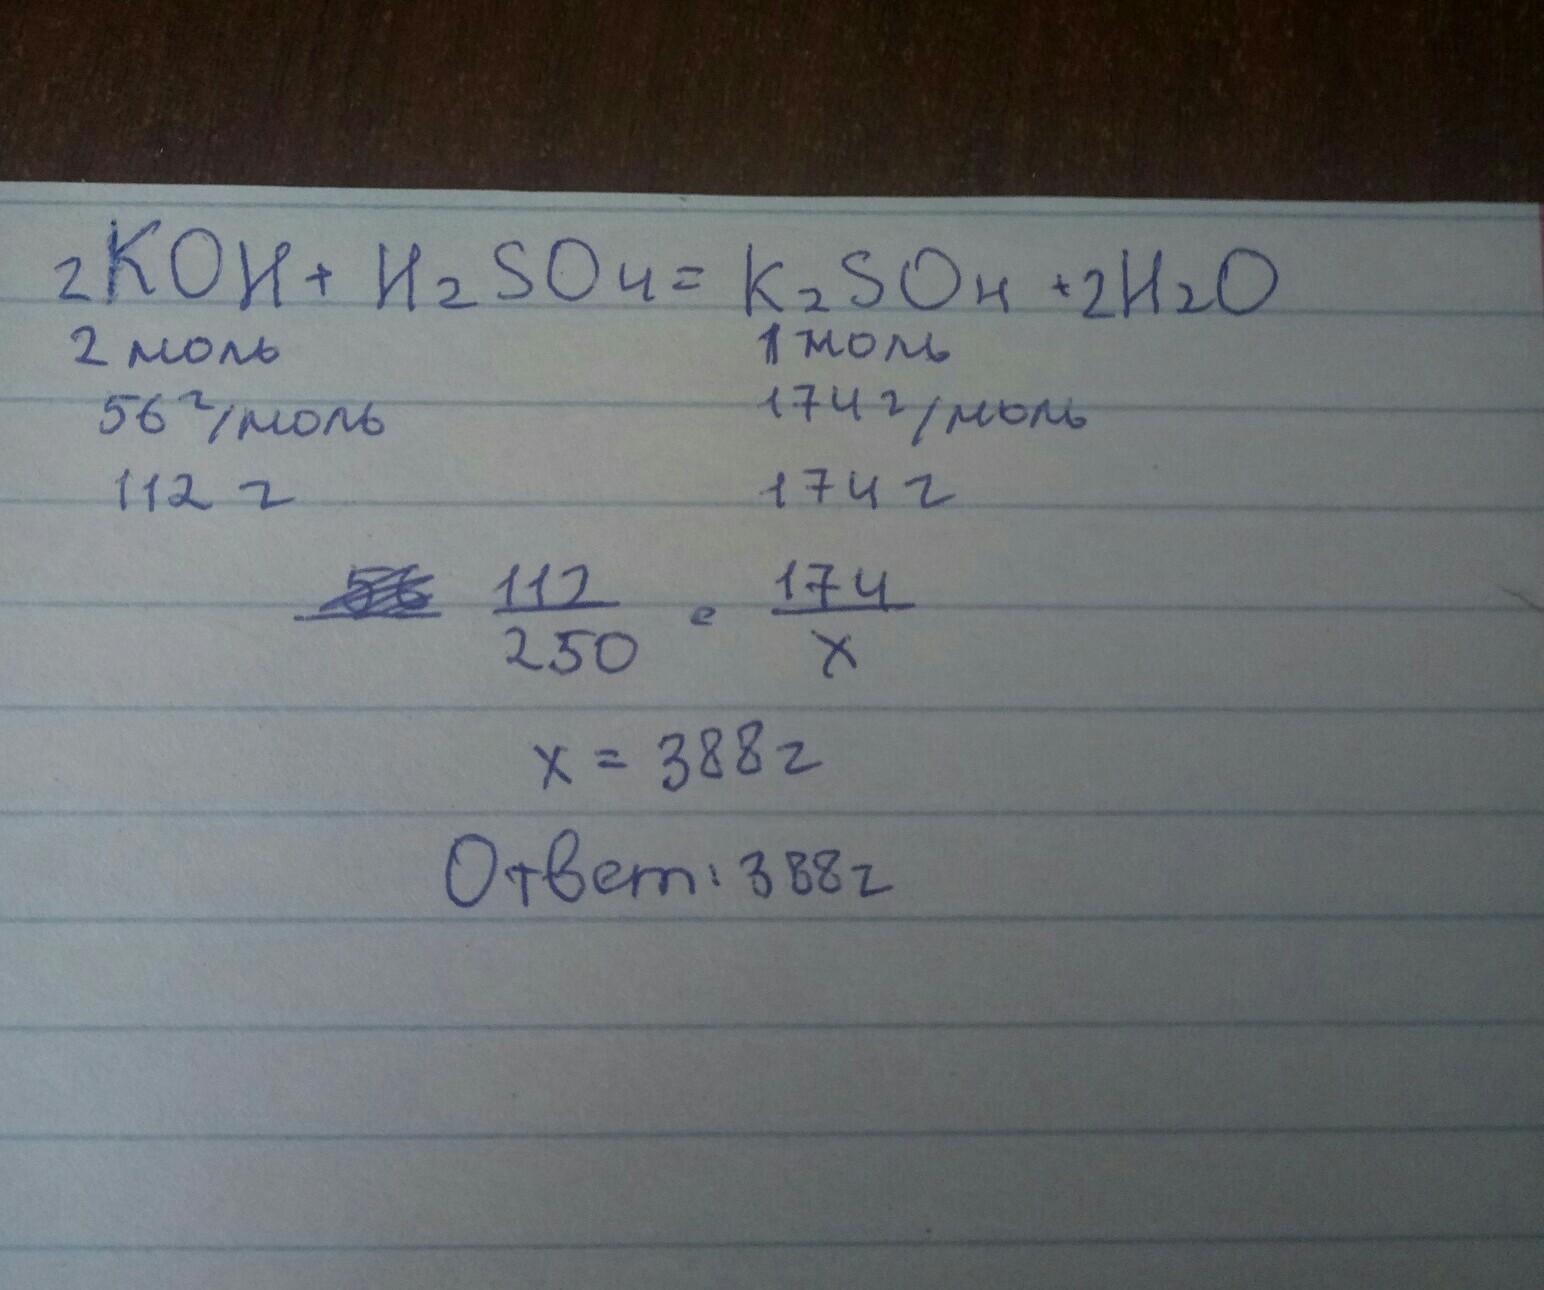 2KOH + H2SO4 = K2SO4 + 2H2O
2 моль 1 моль
56 г/моль 174 г/моль
112 г 174 г
112/250 = 174/x
x = 388 г
Ответ: 388 г